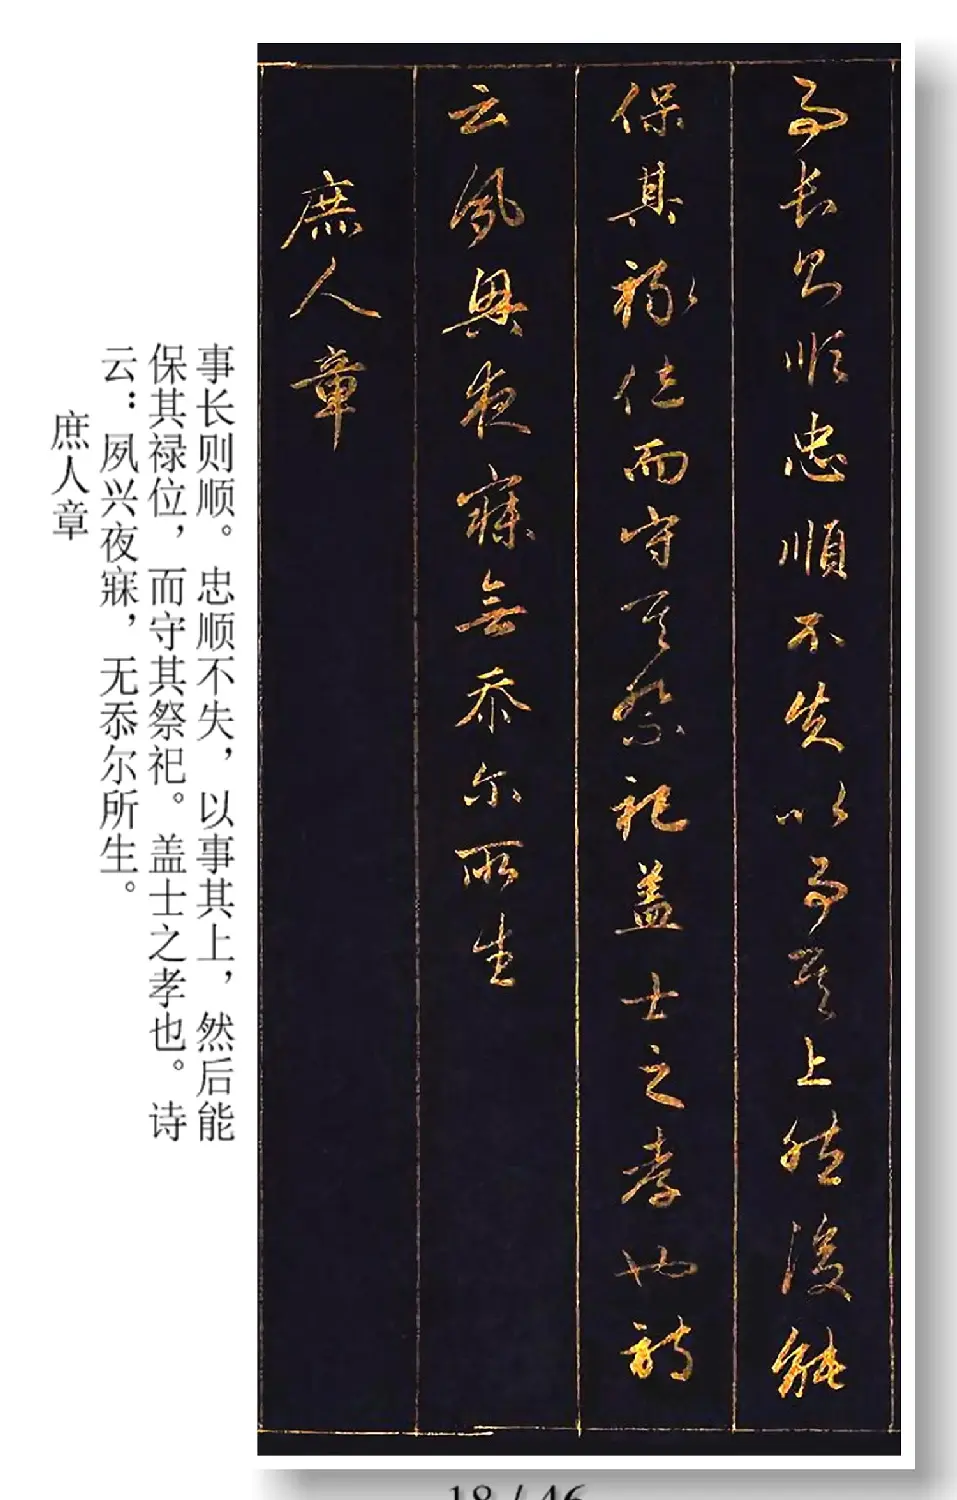 事长则顺忠順不失以事其上然後能
保其禄位而守其祭祀盖士之孝也诗
云夙興夜寐無忝尔所生
庶人章
事长则顺。忠顺不失，以事其上，然后能
保其禄位，而守其祭祀。盖士之孝也。诗
云：夙兴夜寐，无忝尔所生。
庶人章
18 / 46